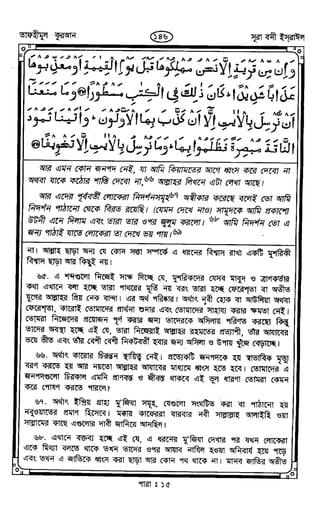 তাফহীমুল কুরআন
১৪৬
সূরা বনী ইসরাঈল
وَإِن مِّن قَرْيَةٍ إِلَّا نَحْنُ مُهْلِكُوهَا قَبْلَ يَوْمِ الْقِيٰمَةِ أَوْ مُعَذِّبُوهَا
عَذَابًا شَدِيدًا ۚ كَانَ ذَٰلِكَ فِي الْكِتٰبِ مَسْطُورًا ۝ وَمَا مَنَعَنَا
أَن نُّرْسِلَ بِالْاٰيٰتِ إِلَّا أَن كَذَّبَ بِهَا الْأَوَّلُونَ ۚ وَاٰتَيْنَا ثَمُودَ
النَّاقَةَ مُبْصِرَةً فَظَلَمُوا بِهَا ۚ وَمَا نُرْسِلُ بِالْاٰيٰتِ إِلَّا تَخْوِيفًا ۝
আর এমন কোন জনপদ নেই, যা আমি কিয়ামতের আগে ধ্বংস করে দেবো না
অথবা যাকে কঠোর শাস্তি দেবো না,৬৬ আল্লাহর লিখনে এটা লেখা আছে।
আর এদের পূর্ববর্তী লোকেরা নিদর্শনসমূহ৬৭ অস্বীকার করেছে বলেই তো আমি
নিদর্শন পাঠানো থেকে বিরত রয়েছি। (যেমন দেখে নাও) সামূদকে আমি প্রকাশ্যে
উটনী এনে দিলাম এবং তারা তার ওপর জুলুম করলো।৬৮ আমি নিদর্শন তো এ
জন্য পাঠাই যাতে লোকেরা তা দেখে ভয় পায়।৬৯
না। আল্লাহ ছাড়া অন্য যে কোন সত্তা সম্পর্কে এ ধরনের বিশ্বাস রাখা একটি মুশরিকী
বিশ্বাস ছাড়া আর কিছুই নয়।
৬৫. এ শব্দগুলো নিজেই সাক্ষ্য দিচ্ছে যে, মুশরিকদের যেসব মাবুদ ও ত্রাণকর্তার
কথা এখানে বলা হচ্ছে তারা পাথরের মূর্তি নয় বরং তারা হচ্ছে ফেরেশতা বা অতীত
যুগের আল্লাহর প্রিয় নেক বান্দা। এর অর্থ পরিষ্কার। অর্থাৎ নবী হোক বা আউলিয়া অথবা
ফেরেশতা, কারোই তোমাদের প্রার্থনা শুনার এবং তোমাদের সাহায্য করার ক্ষমতা নেই।
তোমরা নিজেদের প্রয়োজন পূর্ণ করার জন্য তাদেরকে অসিলায় পরিণত করছো কিন্তু
তাদের অবস্থা হচ্ছে এই যে, তারা নিজেরাই আল্লাহর রহমতের প্রত্যাশী, তাঁর আযাবের
ভয়ে ভীত এবং তাঁর বেশী বেশী নিকটবর্তী হবার জন্য অসিলা ও উপায় খুঁজে বেড়াচ্ছে।
৬৬. অর্থাৎ কারোর চিরন্তন স্থায়িত্ব নেই। প্রত্যেকটি জনপদকে হয় স্বাভাবিক মৃত্যু
বরণ করতে হয় আর নয়তো আল্লাহর আযাবের মাধ্যমে ধ্বংস হতে হবে। তোমাদের এ
জনপদগুলো চিরকাল এমনি প্রাণবন্ত ও জীবন্ত থাকবে এই ভুল ধারণা তোমরা কেমন
করে পোষণ করতে পারলে?
৬৭. অর্থাৎ ইন্দ্রিয় গ্রাহ্য মু'জিযা সমূহ, যেগুলো সংঘটিত করা বা পাঠানো হয়
নবুওয়াতের প্রমাণ হিসেবে। মক্কার কাফেররা বারবার নবী সাল্লাল্লাহু আলাইহি ওয়া
সাল্লামের কাছে এগুলোর দাবী জানিয়ে আসছিল।
৬৮. এখানে বক্তব্য হচ্ছে এই যে, এ ধরনের মু'জিযা দেখার পর যখন লোকেরা
একে মিথ্যা বলতে থাকে তখন তাদের ওপর আযাব নাযিল হওয়া অনিবার্য হয়ে পড়ে
এবং তখন এ জাতিকে ধ্বংস করা ছাড়া আর কোন পথ থাকে না। মানব জাতির অতীত
পারা : ১৫